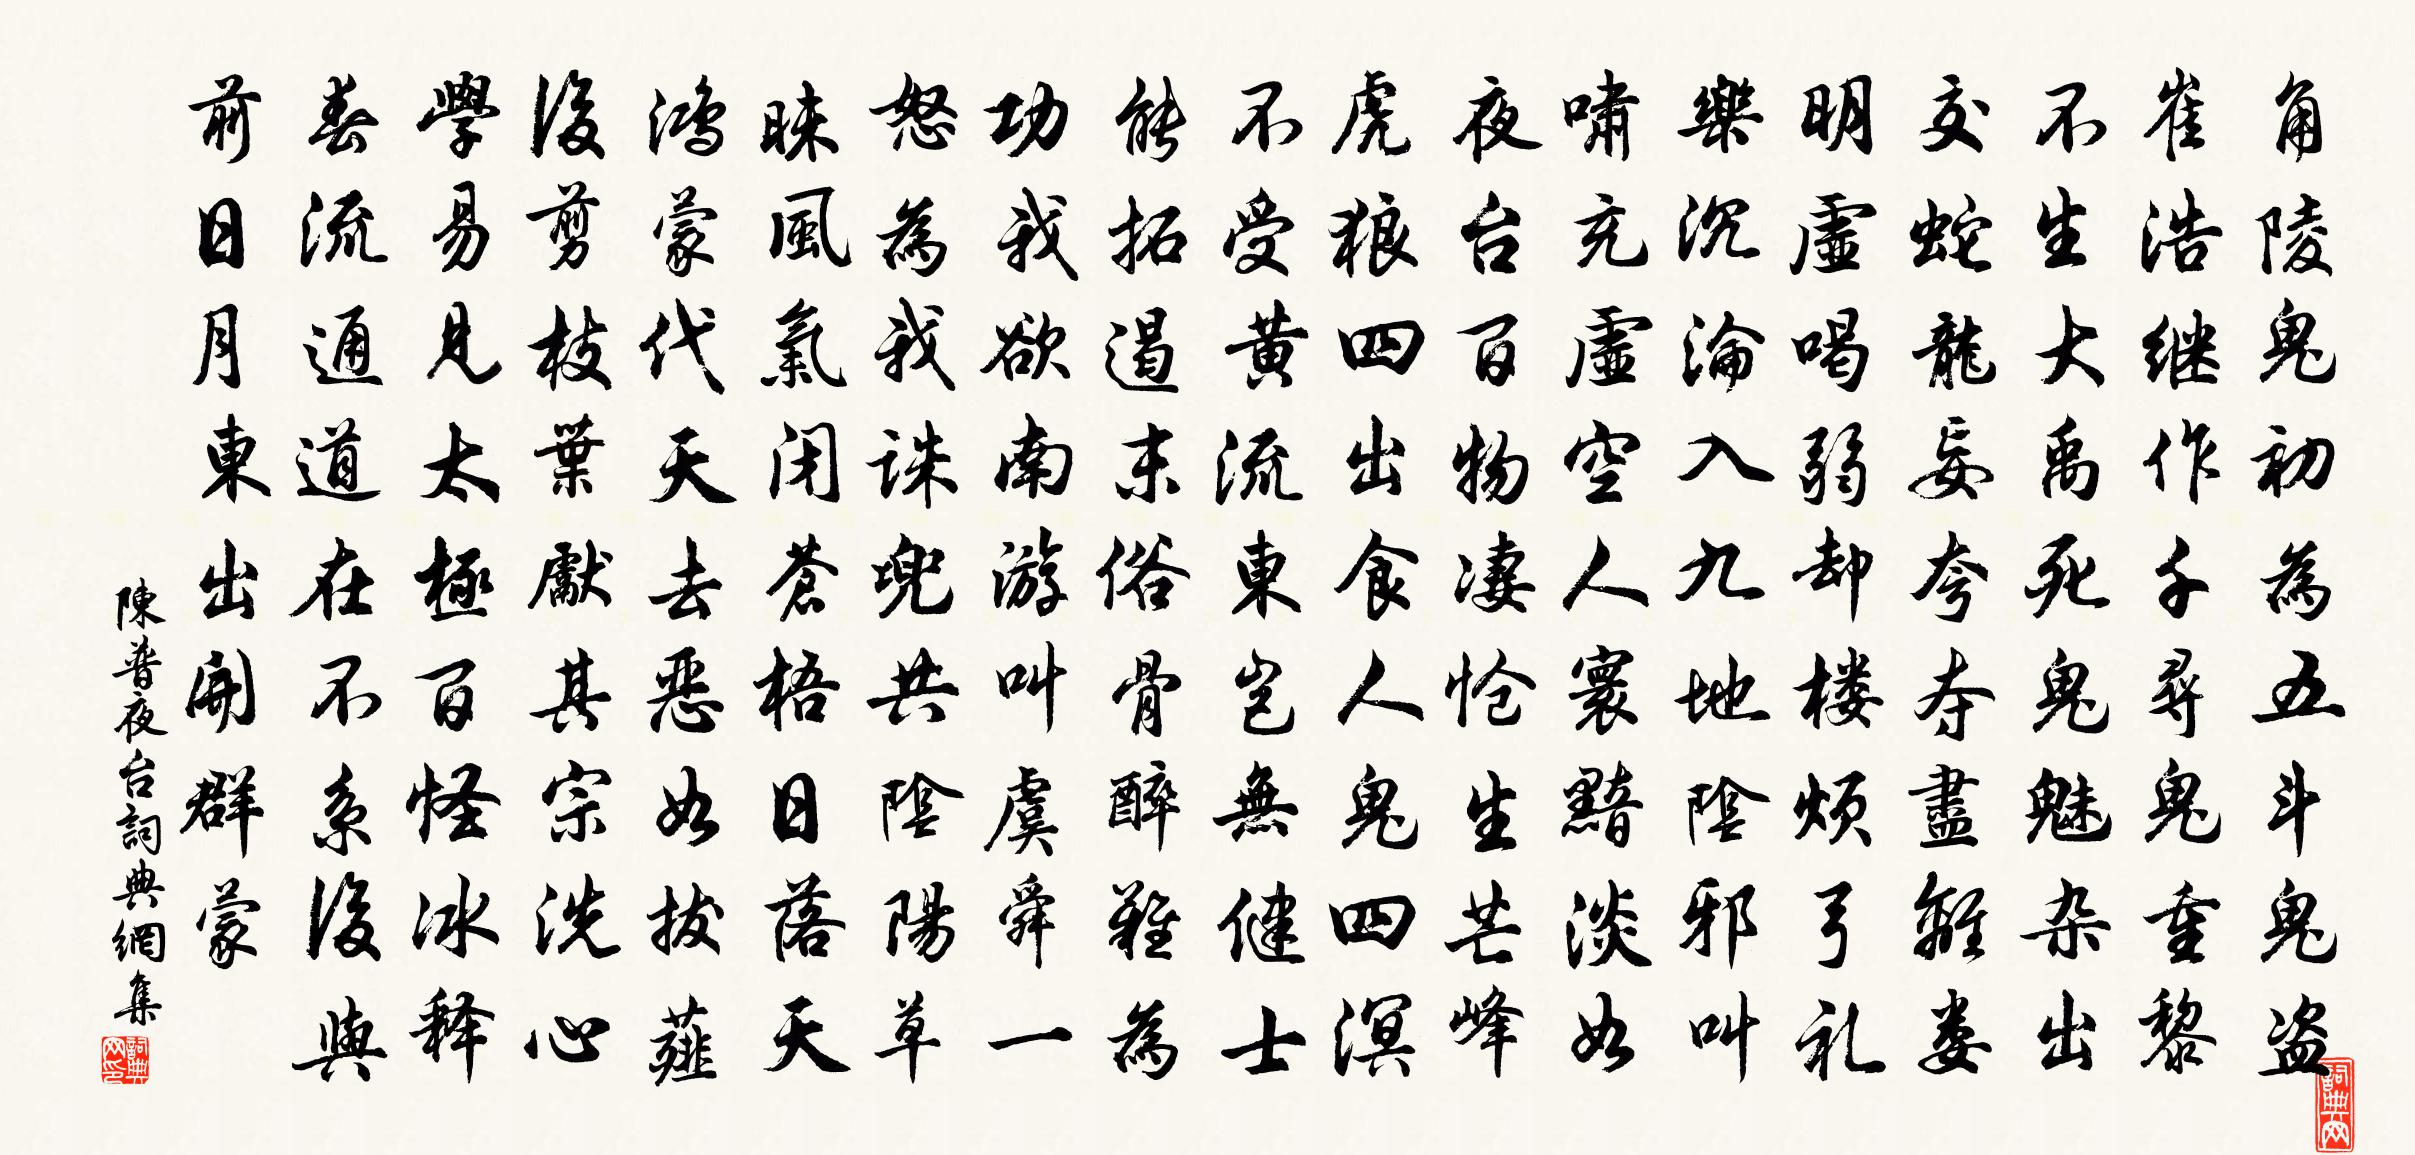 角陵鬼初為五斗鬼盗
崔浩继作千尋鬼重黎
不生大禹死鬼魅杂出
交蛇龍妄夸夺盡離娄
明虛喝弱却楼烦弓礼
樂沉淪入九地陰邪叫
嘯充虛空人寰黯淡如
夜台百物凄怆生芒峰
虎狼四出食人鬼四溟
不受黄流東岂無健士
能拓遏末俗骨醉難為
功我欲南游叫虞舜一
怒為我诛兜共陰陽草
昧風氣闭蒼梧日落天
鸿蒙代天去恶如拔薤
後剪枝葉獻其宗洗心
學易見太極百怪冰释
春流通道在不系後與
前日月東出開群蒙
陳普夜台詞典網集
詞典网
詞典网印